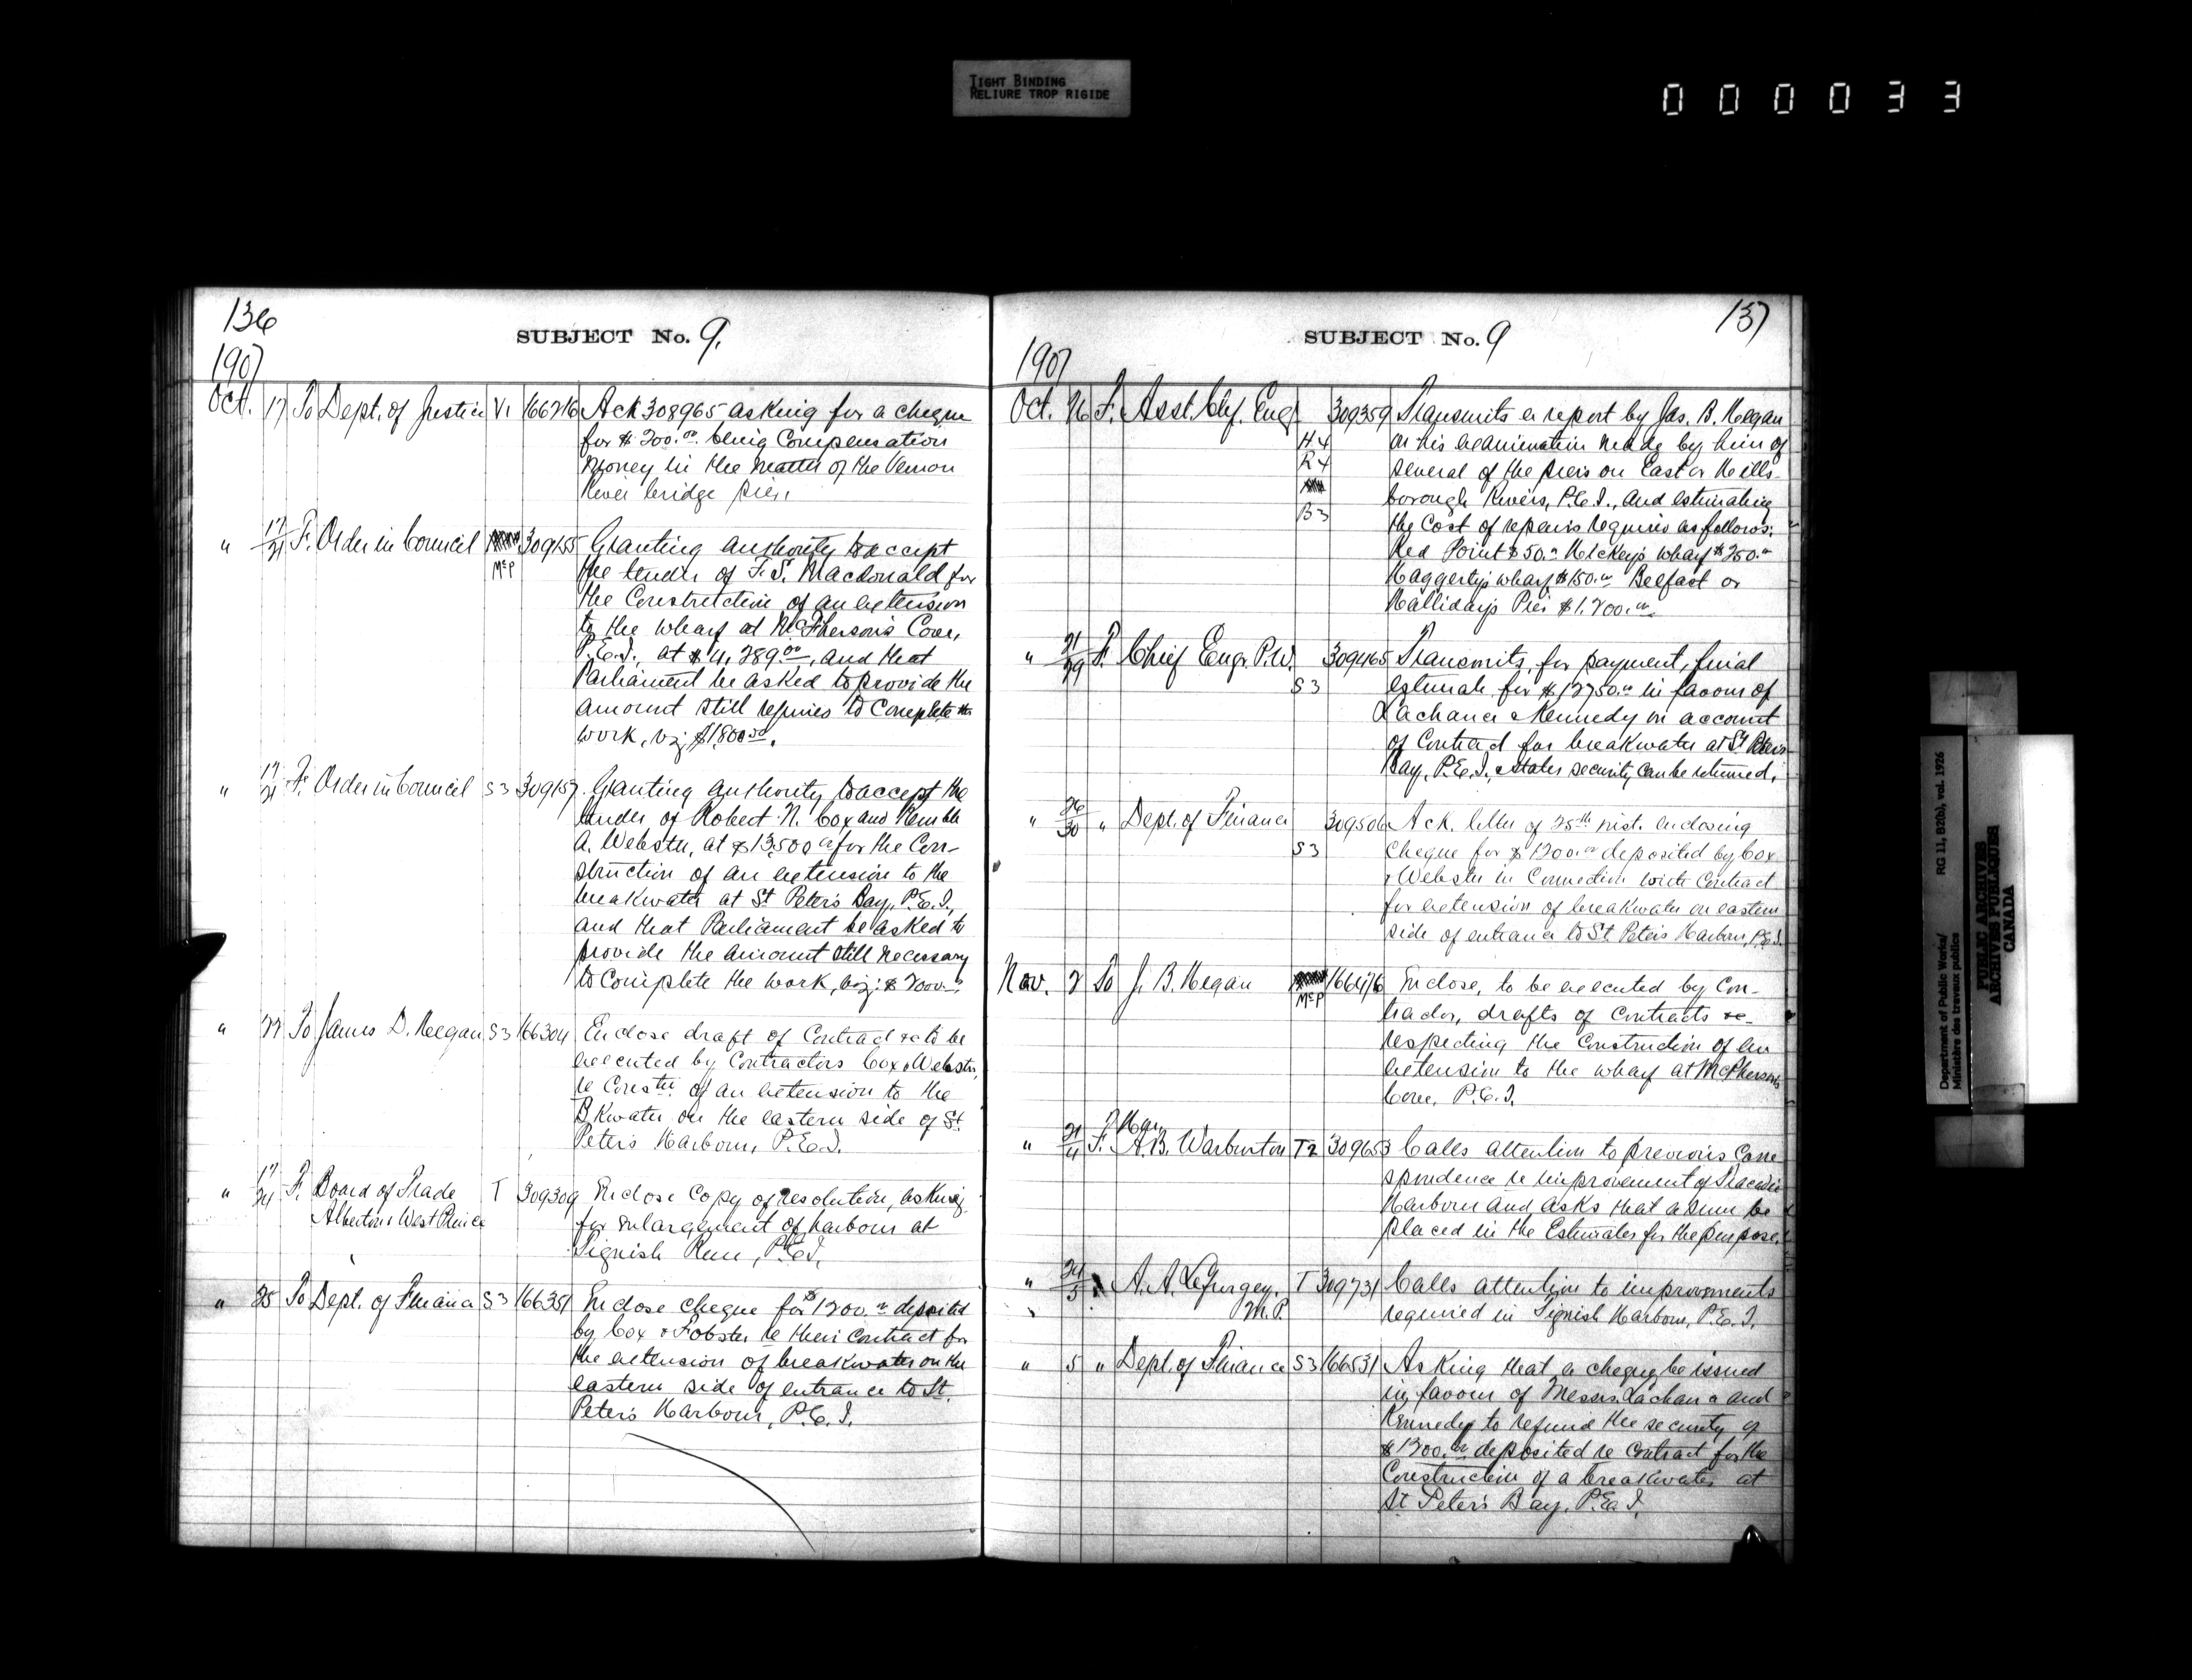 TIGHT BINDING
RELIURE TROP RIGIDE
000033
136
SUBJECT No. 9.
1907
Oct. 17 To Dept. of Justice V1 166216 Ack 308965 asking for a cheque
for $200.00 being Compensation
Money in the matter of the Vernon
River bridge pier.
" 17/21 F. Order in Council McP 309155 Granting authority to accept
the tender of F. S. Macdonald for
the Construction of an extension
to the wharf at McPherson's Cove,
P.E.I., at $4,289.00, and that
Parliament be asked to provide the
amount still requires to Complete the
work, viz $1800.00.
" 17/21 F. Order in Council S3 309157 Granting authority to accept the
tender of Robert N. Cox and Kemble
A. Webster, at $13,500.00 for the Con-
struction of an extension to the
breakwater at St Peter's Bay, P.E.I.,
and that Parliament be asked to
provide the amount still necessary
to Complete the work, viz: $2000.00.
" 22 To James B. Hegan S3 166304 Enclose draft of Contract &c to be
executed by Contractors Cox & Webster,
re Constn of an extension to the
Bkwater on the eastern side of St.
Peter's Harbour, P.E.I.
" 17/24 F. Board of Trade T 309309 Enclose Copy of resolution, asking
Alberton & West Prince for enlargement of harbour at
Tignish Run, P.E.I.
" 25 To Dept. of Finance S3 166351 Enclose cheque for $1200.00 deposited
by Cox & Fobster re their contract for
the extension of breakwater on the
eastern side of entrance to St.
Peter's Harbour, P.E.I.
137
SUBJECT No. 9
1907
Oct. 26 F. Asst. Chf. Eng 309359 Transmits a report by Jas. B. Hegan
H4 on his examination made by him of
R4 several of the piers on East or Hills-
borough Rivers, P.E.I., and estimating
B3 the Cost of repairs requires as follows:
Red Point $50.00 Hickey's wharf $250.00
Haggerty's wharf $150.00 Belfast or
Halliday's Pier $1,200.00
" 21/29 F. Chief Engr. P.W. 309465 Transmits, for payment, final
S3 estimate for $12750.00 in favour of
Lachance & Kennedy on account
of Contract for breakwater at St Peter's
Bay, P.E.I., & states security can be returned.
" 26/30 " Dept. of Finance 309506 Ack. letter of 25th inst. enclosing
S3 cheque for $1200.00 deposited by Cox
& Webster in Connection with Contract
for extension of breakwater on eastern
side of entrance to St. Peter's Harbour, P.E.I.
Nov. 2 To J. B. Hegan McP 166476 Enclose, to be executed by Con-
tractor, drafts of Contracts &c-
respecting the Construction of an
extension to the wharf at McPherson's
Cove, P.E.I.
" 21/4 F. A. B. Warburton T2 309653 Calls attention to previous Corre
spondence re improvement of Tracadie
Harbour and asks that a sum be
placed in the Estimates for the purpose.
" 24/5 " A. A. Lefurgey, T 309731 Calls attention to improvements
M.P. required in Tignish Harbour, P.E.I.
" 5 " Dept. of Finance S3 166531 Asking that a cheque be issued
in favour of Messrs. Lachance and
Kennedy to refund the security of
$1300.00 deposited re Contract for the
Construction of a breakwater at
St Peter's Bay, P.E.I.
Department of Public Works/ RG 11, B2(b), vol. 1926
Ministère des travaux publics
PUBLIC ARCHIVES
ARCHIVES PUBLIQUES
CANADA